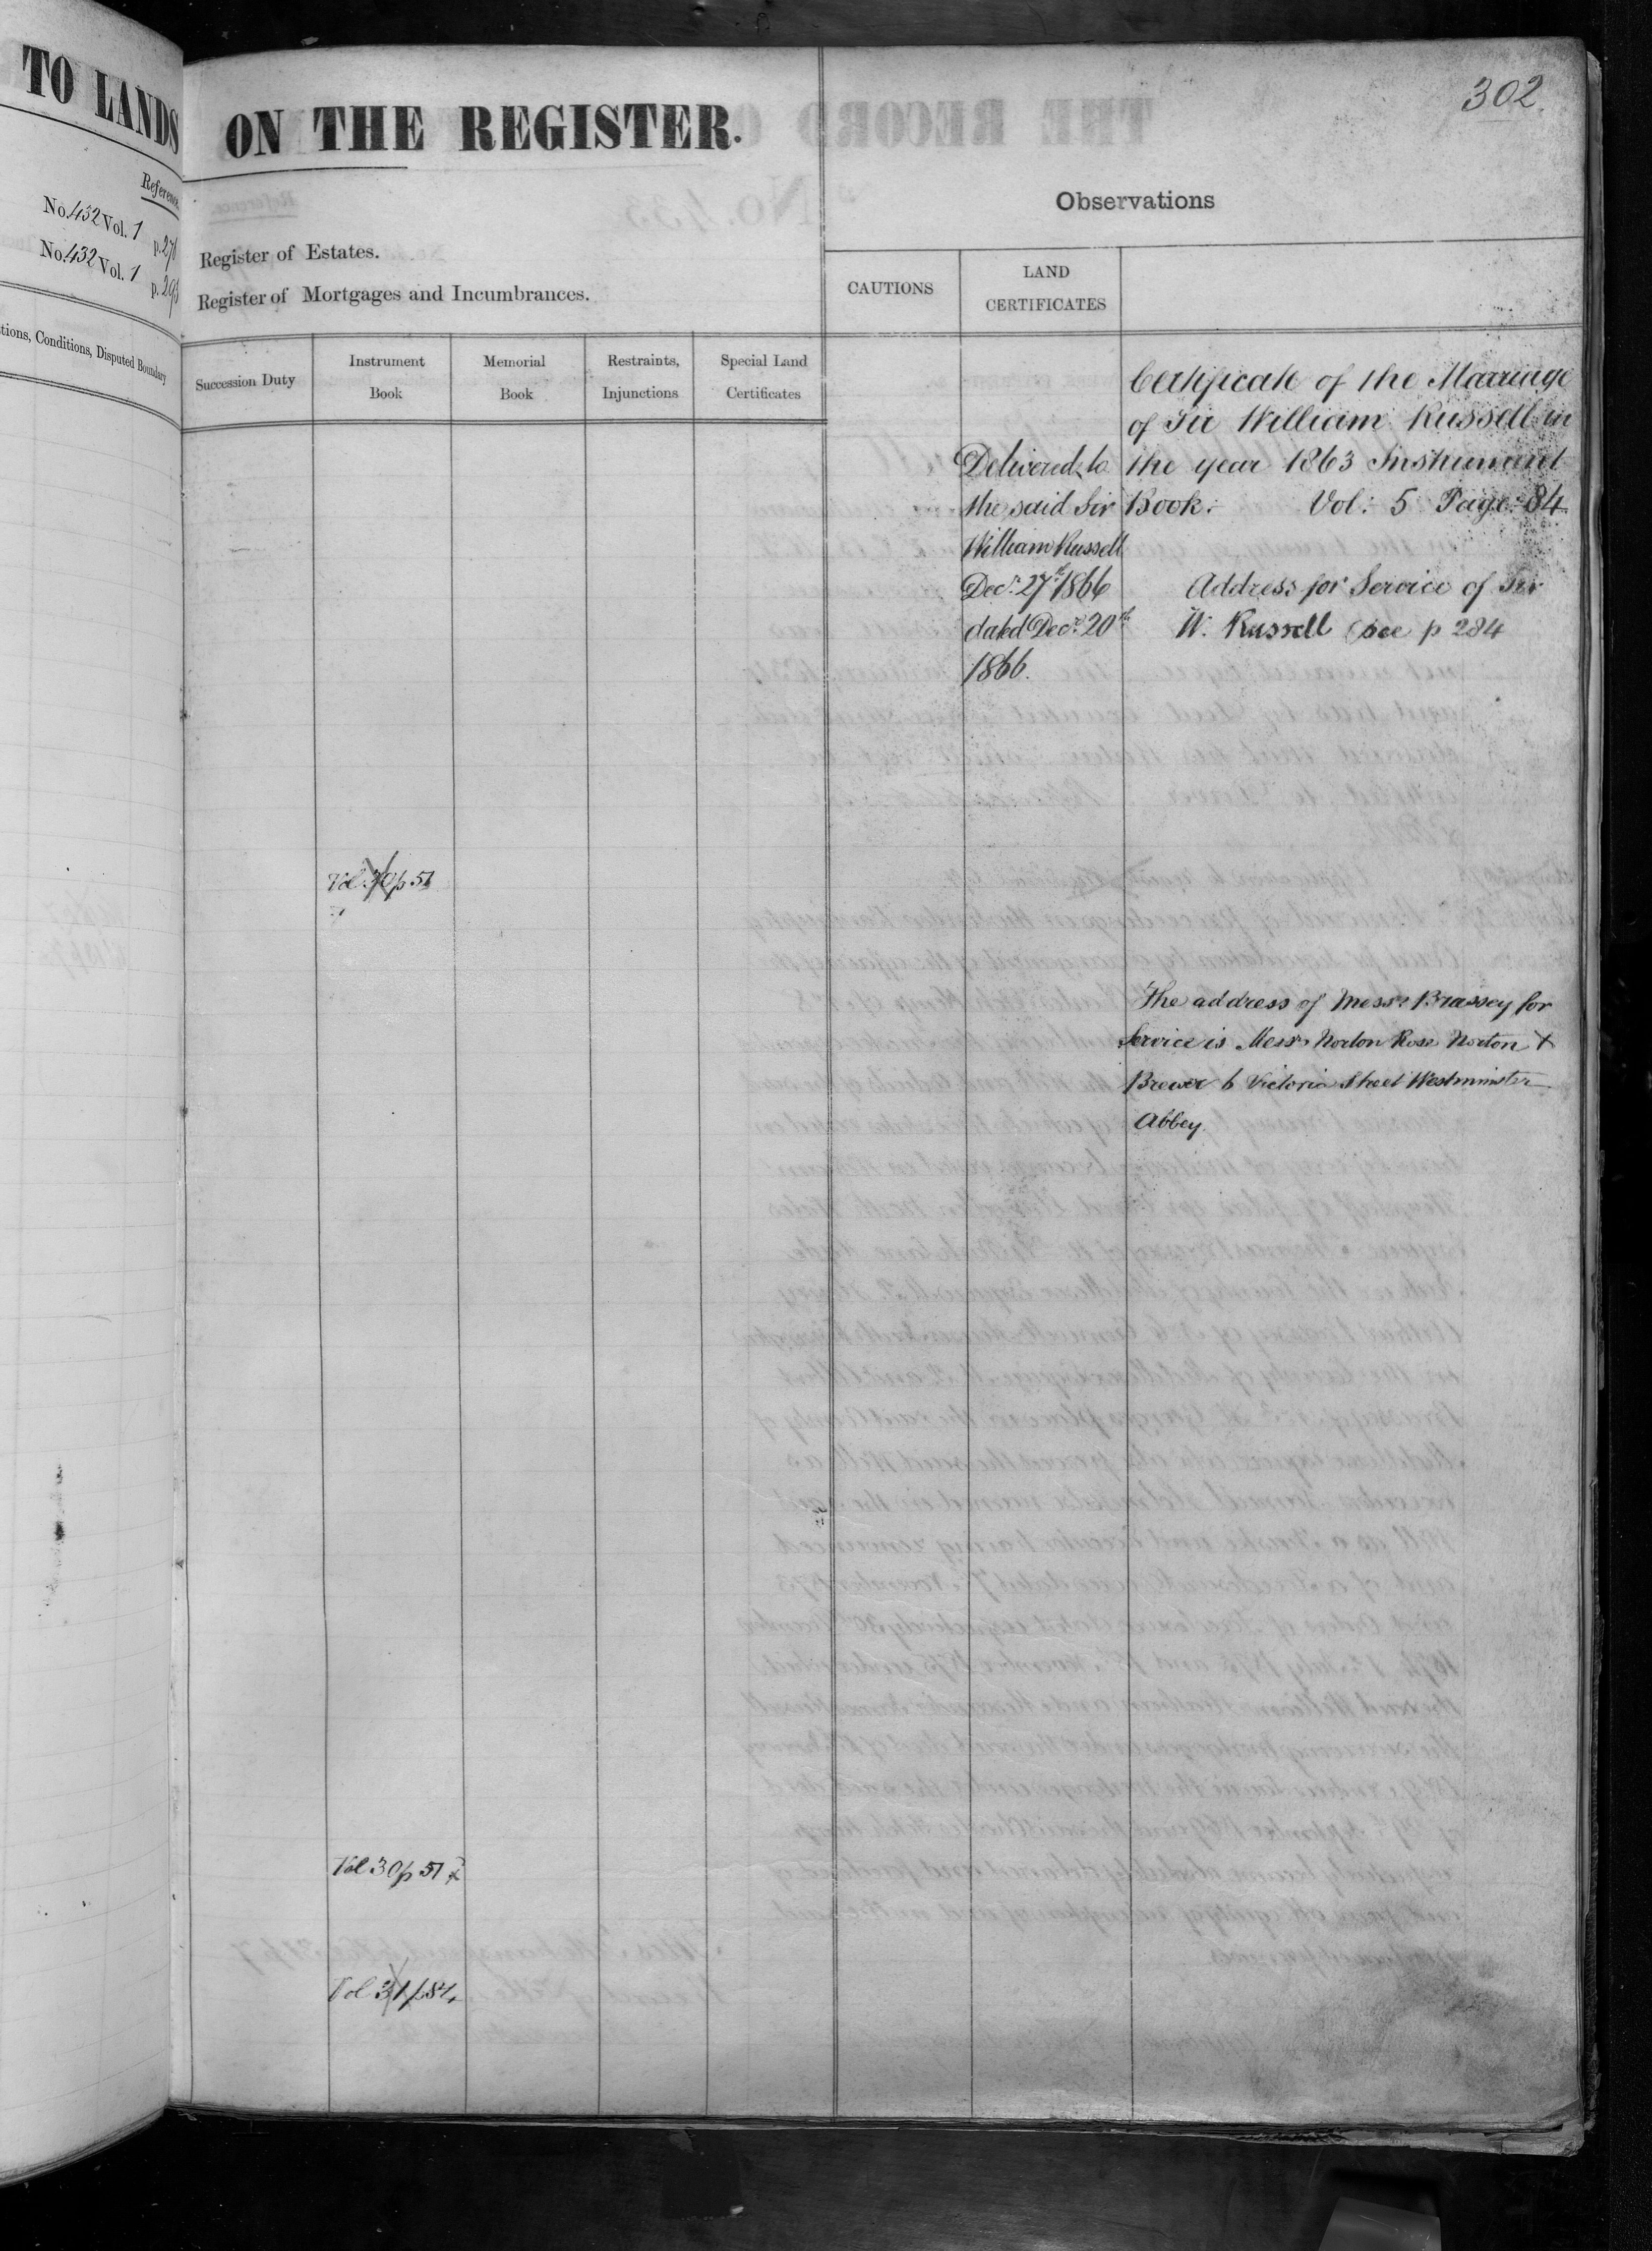 302.
TO LANDS
Reference.
No. 432 Vol. 1 p. 276
No. 432 Vol. 1
tions, Conditions, Disputed Boundary
ON THE REGISTER.
Register of Estates.
Register of Mortgages and Incumbrances.
Succession Duty
Instrument
Book
Memorial
Book
Restraints,
Injunctions
Special Land
Certificates
Vol 30 p 51
Vol 30 p 51
Vol 31 p 84
Observations
CAUTIONS
LAND
CERTIFICATES
Delivered to
the said Sir
William Russell
Decr. 27th 1866
dated Decr. 20th
1866.
Certificate of the Marriage
of Sir William Russell in
the year 1863 Instrument
Book. Vol: 5 Page: 84
Address for Service of Sir
W. Russell (see p 284
The address of Messrs Brassey for
Service is Messrs Norton Rose Norton &
Brewer 6 Victoria Street Westminster
Abbey.